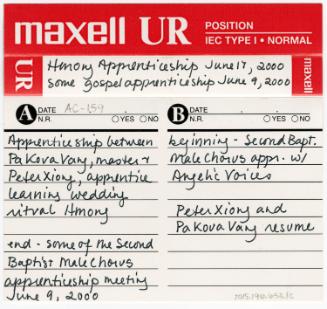 maxell UR POSITION
IEC TYPE I • NORMAL
UR Hmong Apprenticeship June 17, 2000
some gospel apprenticeship June 9, 2000
maxell
A DATE AC-159
N.R. YES NO
Apprenticeship between
Pa Kova Vang, master &
Peter Xiong, apprentice
learning wedding
ritual Hmong
end - some of the Second
Baptist Male Chorus
apprenticeship meeting
June 9, 2000
B DATE
N.R. YES NO
beginning - Second Bapt.
Male Chorus appr. w/
Angelic Voices
Peter Xiong and
Pa Kova Vang resume